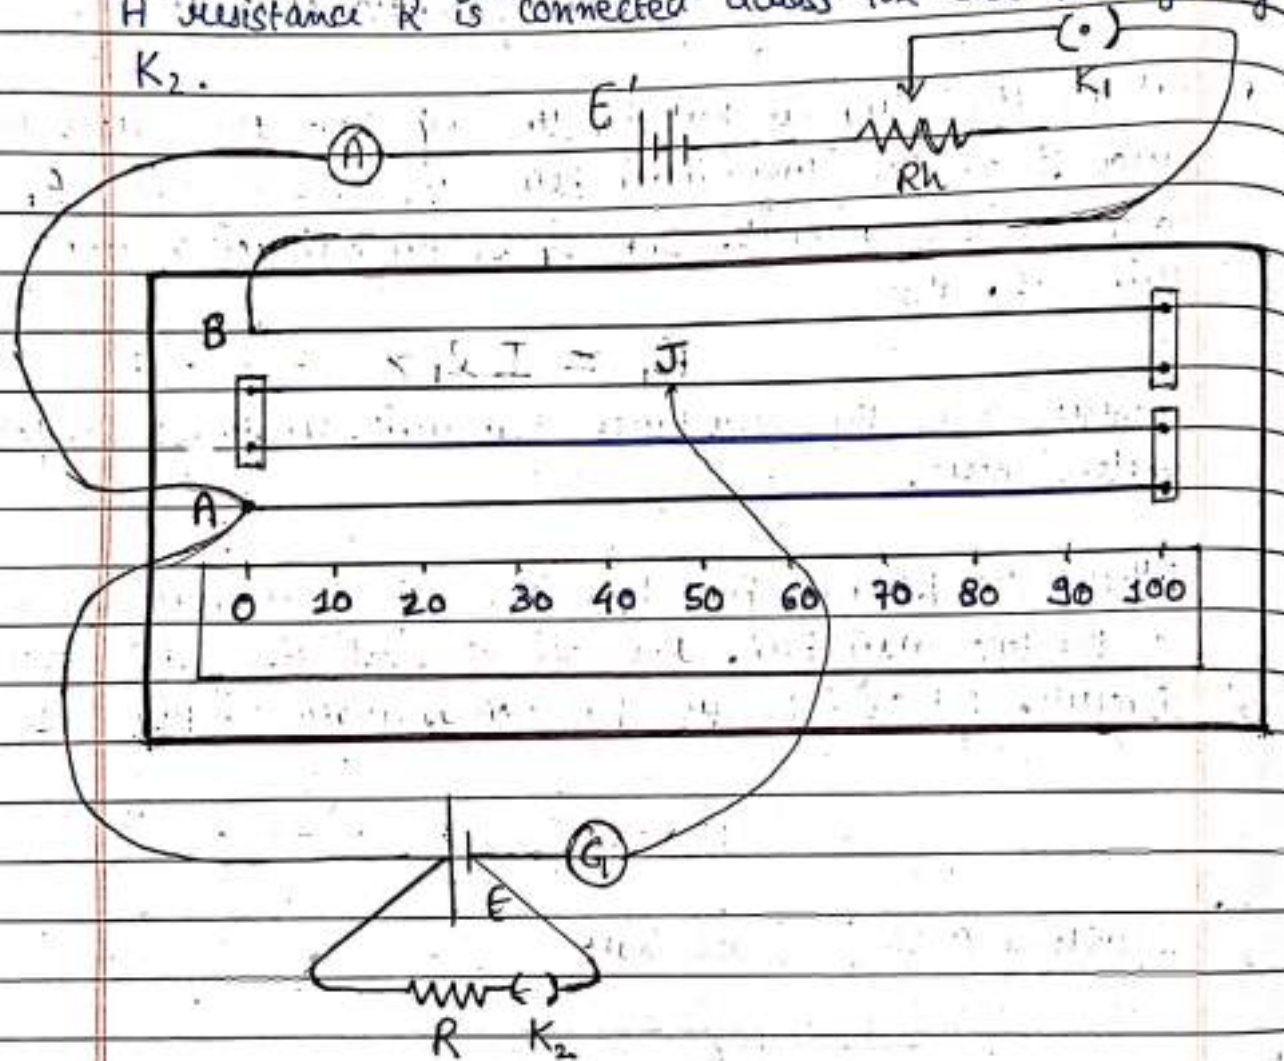 A resistance R is connected across
K₂.
(·)
K₁
E'
A
Rh
B
J
A
0 10 20 30 40 50 60 70 80 90 100
G
E
R K₂